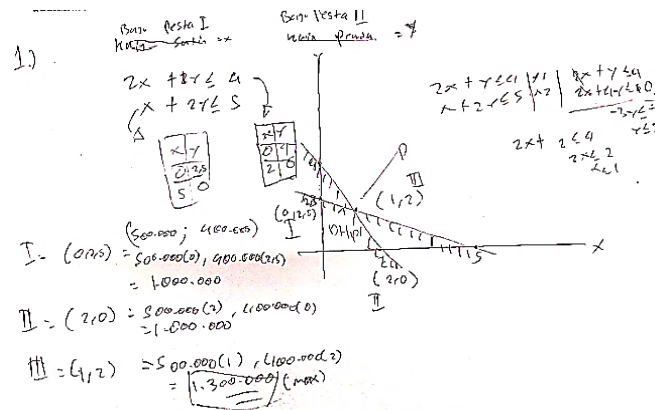 Baju Pesta I
Baju Pesta II
= x
= y
1.)
2x + y ≤ 4
x + 2y ≤ 5
x y
0 2,5
5 0
x y
0 4
2 0
2x + y ≤ 4 | x1 | 2x + y ≤ 4
x + 2y ≤ 5 | x2 | 2x + 4y ≤ 10
2x + 2 ≤ 4
2x ≤ 2
y
P
(1,2)
III
(0, 2,5)
I
DHP
5
x
(2,0)
II
(500.000 ; 400.000)
I = (0, 2,5) = 500.000(0), 400.000(2,5)
= 1.000.000
II = (2,0) = 500.000(2), 400.000(0)
= 1.000.000
III = (1,2) = 500.000(1), 400.000(2)
= 1.300.000 (max)